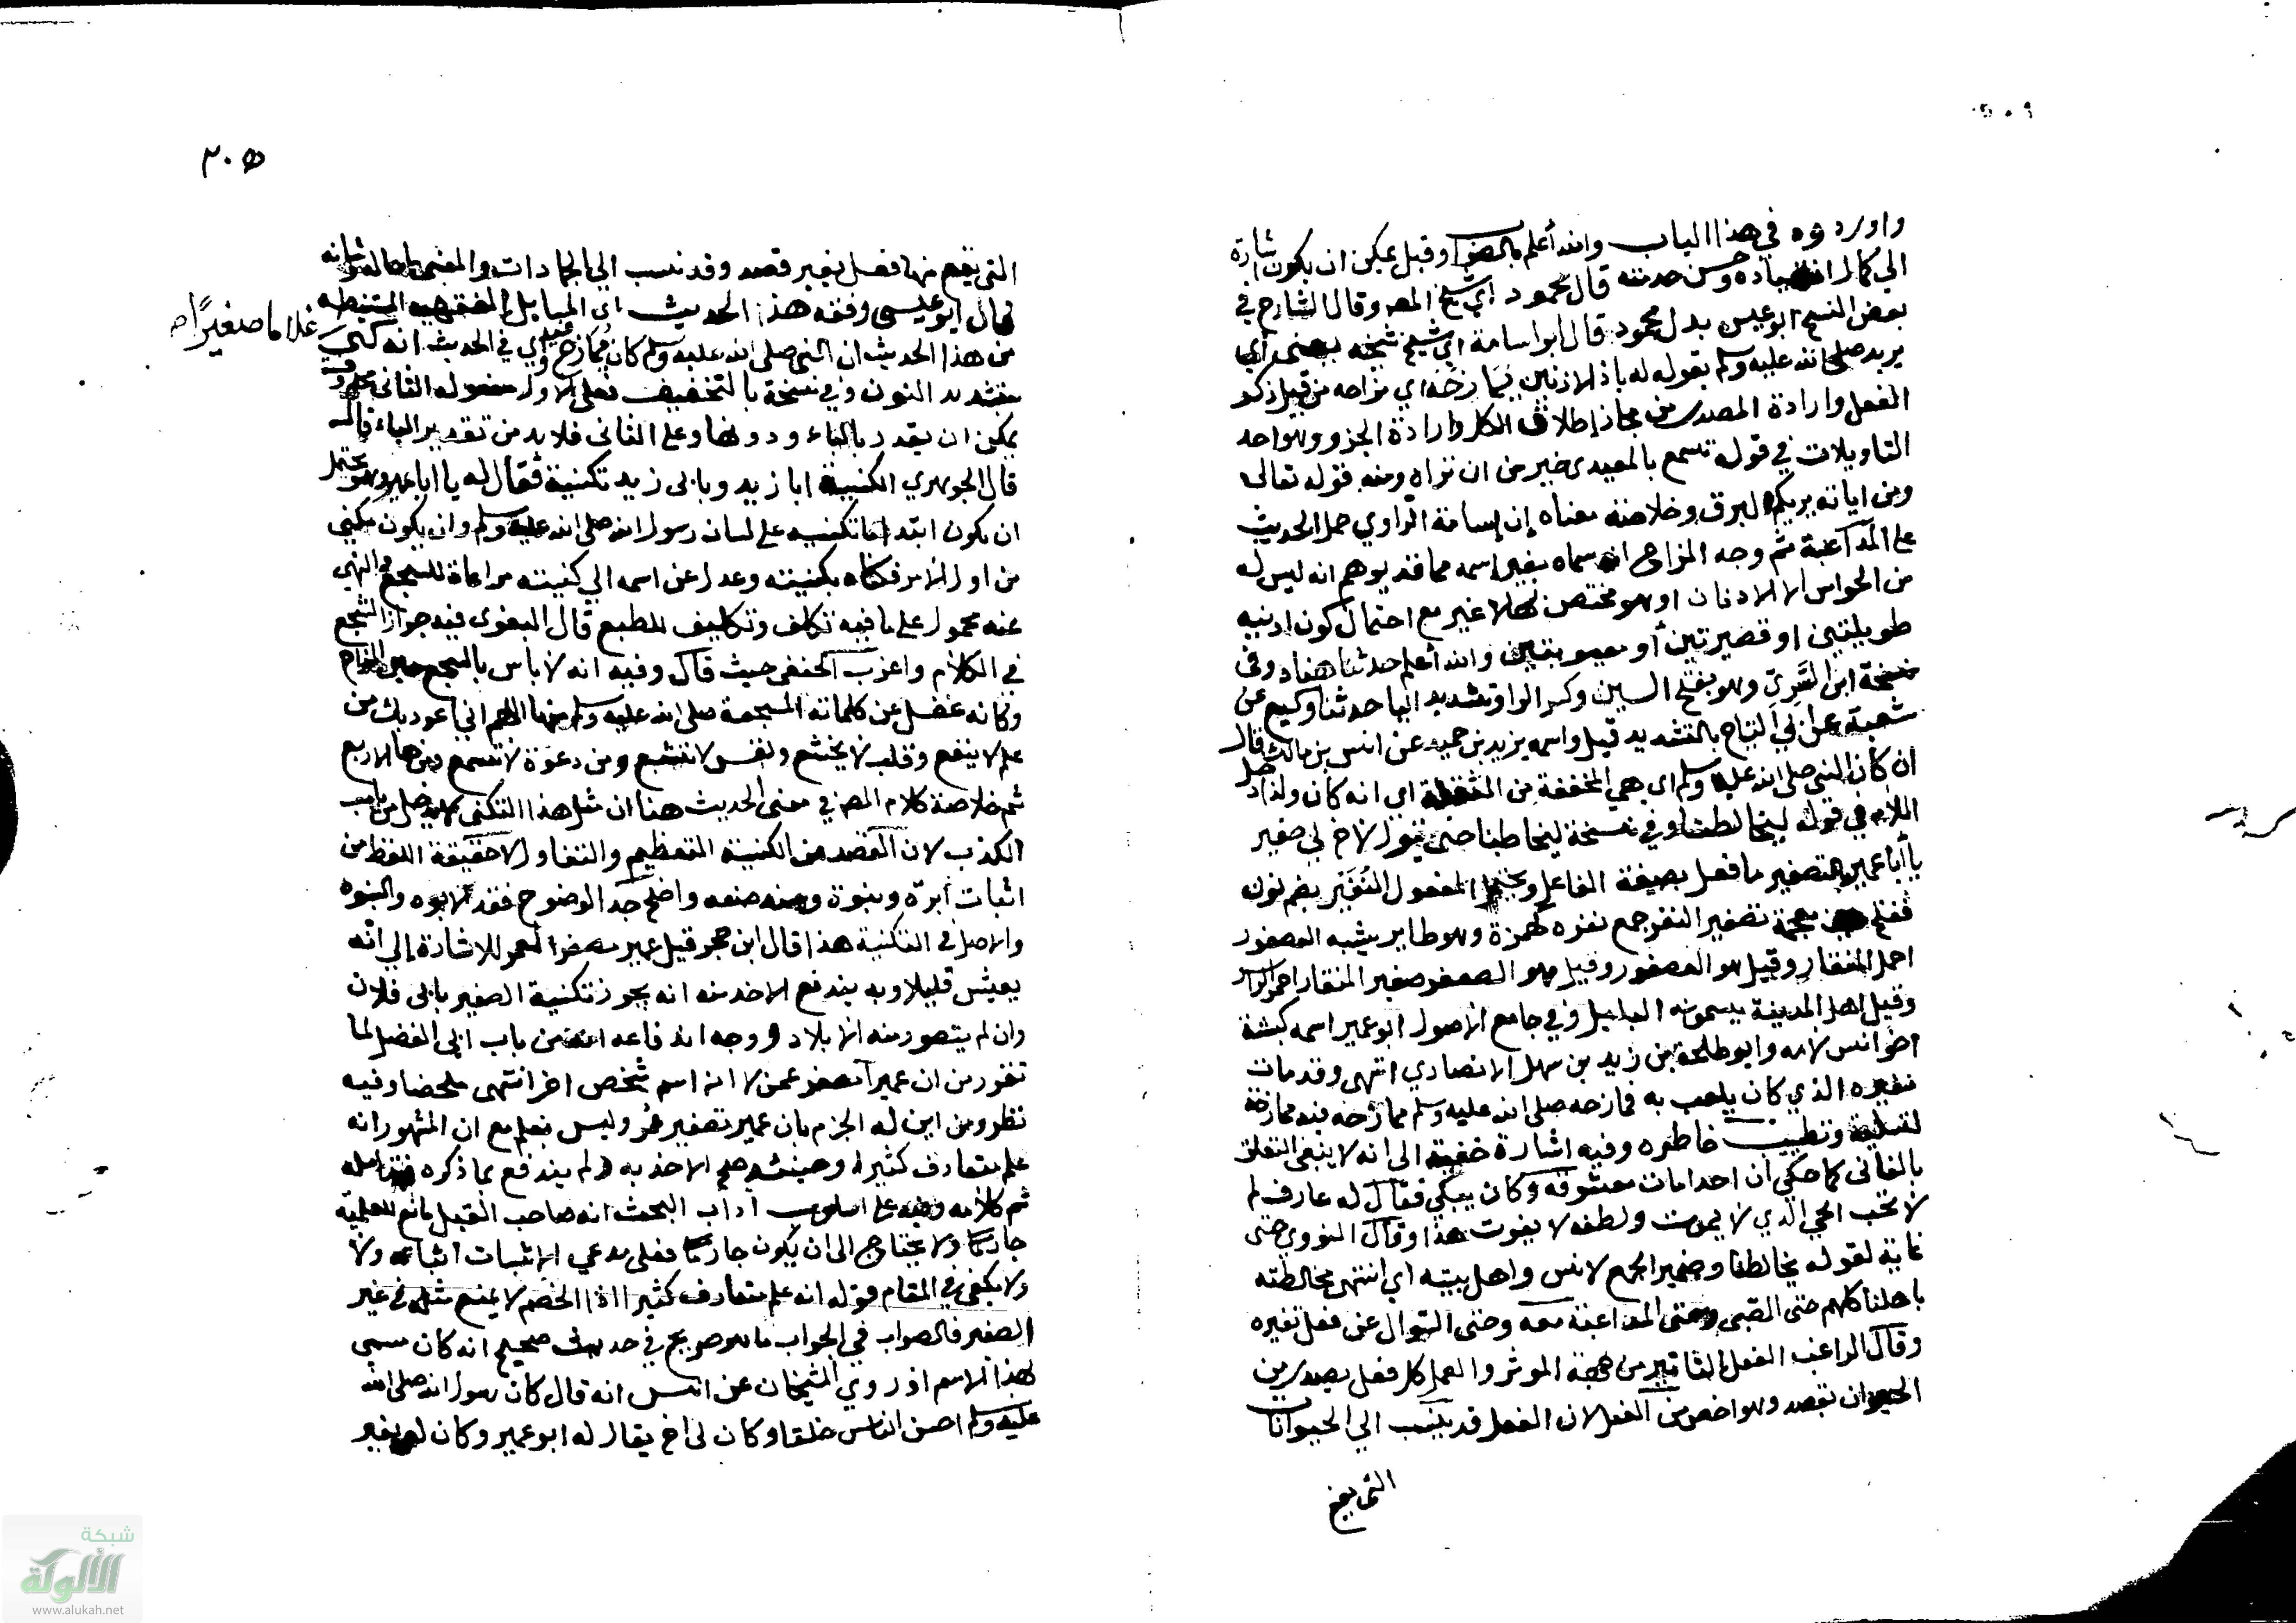 واوردوه في هذا الباب والله أعلم بالصواب وقيل يمكن ان يكون اشارة
الي كمال انقياده وحسن خدمته قال محمود اي شيخ المص وقال الشارح في
بعض النسخ ابو عيسى بدل محمود قال ابو اسامة اي شيخ شيخه يعني أي
يريد صلى الله عليه وسلم بقوله له ياذا الاذنين يمازحه اي مزاحه من قبيل ذكر
الفعل وارادة المصدر من مجاز إطلاق الكل وارادة الجزو وهو احد
التاويلات في قوله تسمع بالمعيدى خير من ان تراه ومنه قوله تعالى
ومن اياته يريكم البرق وخلاصته معناه إن إسامة الراوي حمل الحديث
على المداعبة ثم وجه المزاح انه سماه بغير اسمه مما قد يوهم انه ليس له
من الحواس الا الاذنان او هو مختص بهما لا غير مع احتمال كون اذنيه
طويلتين او قصيرتين أو معيوبتين والله أعلم حدثنا هناد وفي
نسخة ابن السَّرِيّ وهو بفتح السين وكسر الرا وتشديد اليا حدثنا وكيع عن
شعبة عن أبي التياح بالتشديد قيل واسمه يزيد بن حميد عن انس بن مالك قال
ان كان النبي صلى الله عليه وسلم اي هي المخففة من المثقلة اي انه كان ولذا دخل
اللام في قوله ليخالطنا وفي نسخة ليخاطبنا حتى يقول لاخ لي صغير
يا أبا عمير بالتصغير ما فعل بصيغة الفاعل ويحتمل المفعول النُغَيْر بضم نون
ففتح معجمة تصغير النغر جمع نغره كهمزة وهو طاير يشبه العصفور
احمر المنقار وقيل هو العصفور وقيل هو الصعفو صغير المنقار احمر الراس
وقيل اهل المدينة يسمونه البلبل وفي جامع الاصول ابو عمير اسمه كبشة
اخو انس لامه وابو طلحة بن زيد بن سهل الانصاري انتهى وقد مات
نغيره الذي كان يلعب به فمازحه صلى الله عليه وسلم ممازحه فيه ممازحة
لتسليته وتطييب خاطره وفيه اشارة خفية الى انه لا ينبغي التعلق
بالفاني كما حكي أن احدا مات معشوقه وكان يبكي فقال له عارف لم
لا تحب الحي الذي لا يموت ولطفه لا يفوت هذا وقال النووي حتى
غاية لقوله يخالطنا وضمير الجمع لانس واهل بيته اي انتهى مخالطته
باهلنا كلهم حتى الصبي وحتى المداعبة معه وحتى السوال عن فعل نغيره
وقال الراغب الفعل التاثير من جهة الموثر والعمل كل فعل يصدر من
الحيوان بقصد وهو اخص من الفعل لان الفعل قد ينسب الي الحيوانات
التي يقع
٢٠٥
التي يقع منها فعل بغير قصد وقد ينسب الي الجمادات والمعنى ما حاله وشانه
قال ابو عيسى وفقه هذا الحديث اي المسايل الفقهيه المستنبطه
من هذا الحديث ان النبي صلى الله عليه وسلم كان يُمازح وفي الحديث انه كنى
غلاما صغيرًا صح
بتشديد النون وفي نسخة بالتخفيف فعلى الاول مفعوله الثاني محذوف
يمكن ان يقدر بالباء ودونها وعلى الثاني فلا بد من تقدير الباء فانه
قال الجوهري الكنية ابا زيد وبابى زيد تكنية فقال له يا ابا عمير وهو يحتمل
ان يكون ابتداء تكنيه على لسان رسول الله صلى الله عليه وسلم وان يكون مكنى
من اول الامر فكناه بكنيته وعدل عن اسمه الي كنيته مراعاة للسجع والنهي
عنه محمول على ما فيه تكلف وتكليف للطبع قال البغوى فيه جواز السجع
في الكلام واغرب الحنفي حيث قال وفيه انه لا باس بالسجع حين المزاح
وكانه غفل عن كلماته المسجعة صلى الله عليه وسلم منها اللهم اني اعوذ بك من
علم لا ينفع وقلب لا يخشع ونفس لا تشبع ومن دعوة لا تسمع ومن هاؤلا الاربع
ثم خلاصة كلام المص في معنى الحديث هنا ان مثل هذا التكني لا يدخل من باب
الكذب لان القصد من الكنية التعظيم والتفاول لا حقيقة اللفظ من
اثبات أبوّة وبنوة واضح جد الوضوح فقد الابوه والبنوه
والاصل في التكنية هذا قال ابن حجر قيل عمير مصغر العمر للاشارة إلي انه
يعيش قليلا وبه يندفع الاخذ منه انه يجوز تكنية الصغير بابى فلان
وان لم يتصور منه الايلاد ووجه اندفاعه انه من باب ابى الفضل لما
تقرر من ان عميرا مصغر عمر لا انه اسم شخص اخر انتهى ملخصا وفيه
نظر ومن اين له الجزم بان عمير تصغير عمر وليس بعلم مع ان المشهور انه
علم متعارف كثيرا وحينئذ صح الاخذ به ولم يندفع بما ذكره فتامله
ثم كلامه وفيه على اسلوب آداب البحث انه صاحب القيل مانع للعلمية
جازما ولا يحتاج الى ان يكون جازما فعلى مدعي الاثبات اثباته ولا
ولا يكفي في المقام قوله انه علم متعارف كثيرا اذ الخصم لا يمنع مثله في غير
الصغير فالصواب في الجواب ما هو صريح في حديث صحيح انه كان مسمى
بهذا الاسم اذ روي الشيخان عن انس انه قال كان رسول الله صلى الله
عليه وسلم احسن الناس خلقا وكان لى اخ يقال له ابو عمير وكان له نغير
شبكة
الألوكة
www.alukah.net